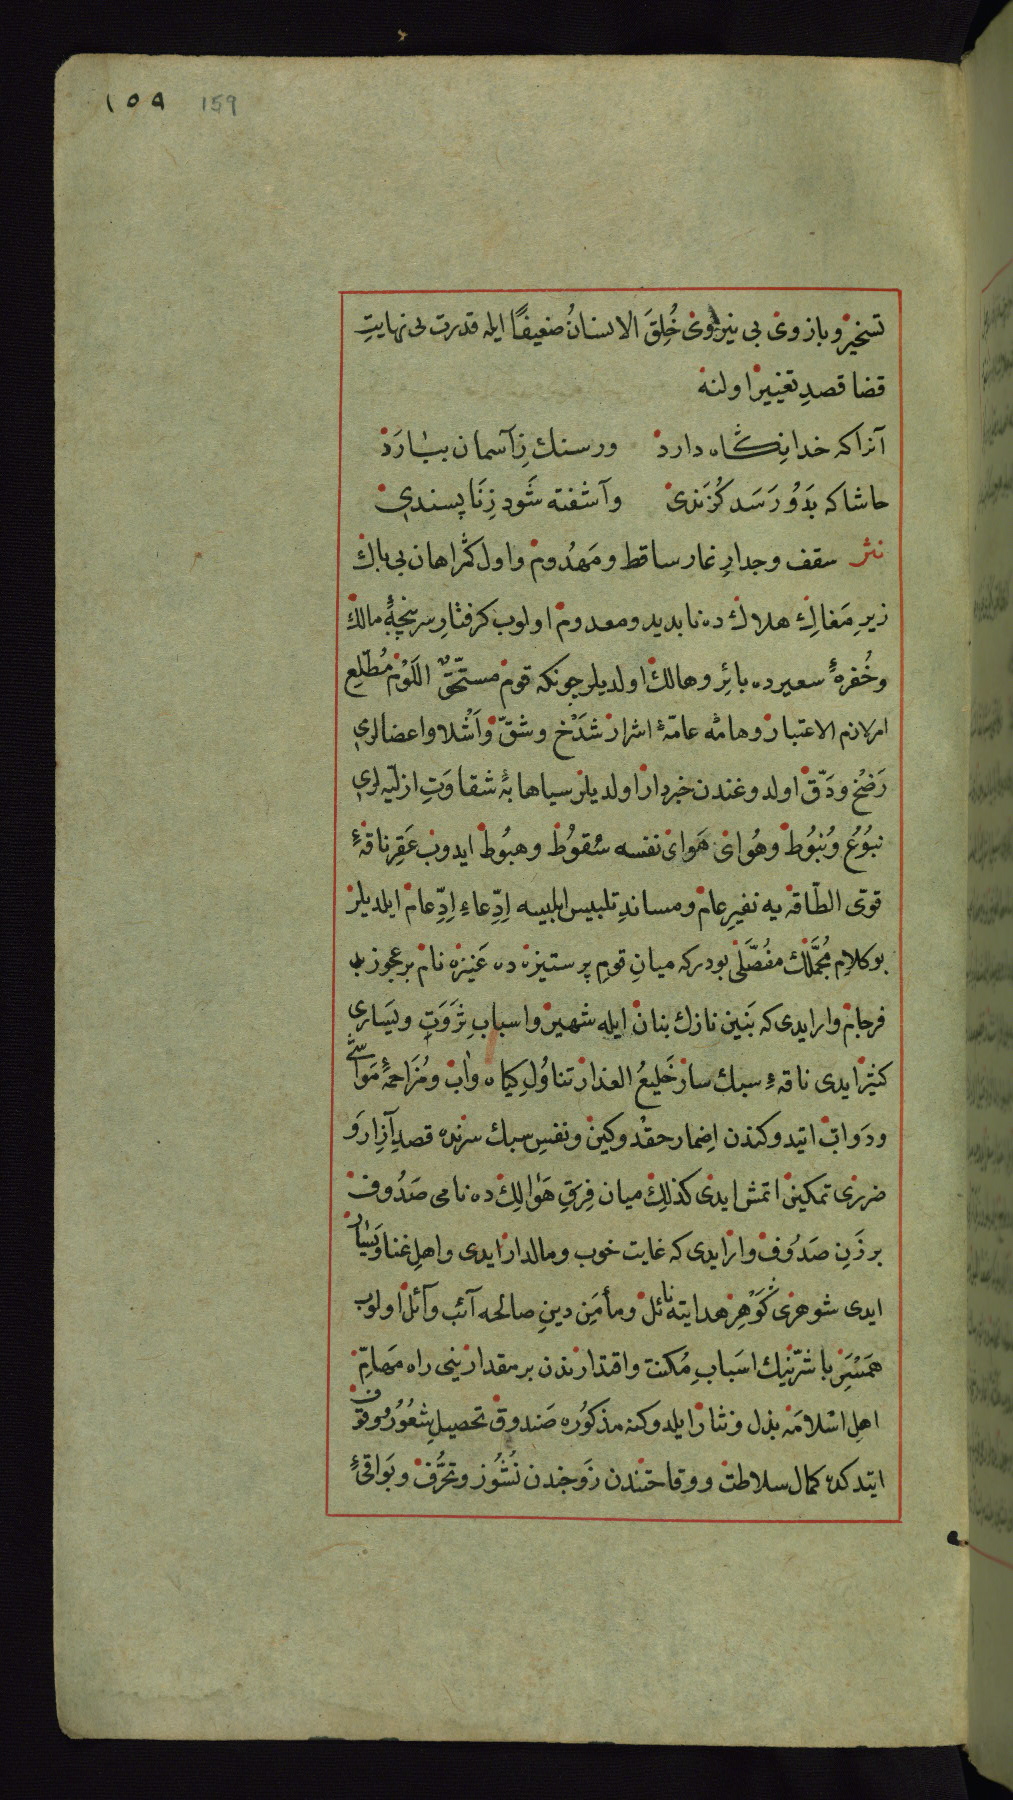 ١٥٩ 159
تسخير و بازوى بى نيروى خُلِقَ الانسانُ ضعيفًا ايله قدرت بى نهايتِ
قضا قصدِ تغيير اولنه
آنرا كه خدا نكاه دارد ورسنك زِآسمان ببارَدْ
حاشا كه بَدُو رَسَد كُزَندى وآشفته شَود زِنَا پسندى
نثر سقف وجدارِ غار ساقط ومَهدُوم واول كمراهان بى باك
زيرِ مَغاكِ هلاك ده نابديد ومعدوم اولوب كرفتارِ سرپنجهٔ مالك
وحُفرهٔ سعيرده بائِر وهالك اولديلر چونكه قوم مستحقّ اللَوْم مُطّلِعِ
امر لازم الاعتبار وهامّه عامّهٔ اشرار شَدْخ وشقّ وآشلا واعضالرى
رَضْخ ودَقّ اولدوغندن خبردار اولديلر سياهابهٔ شقاوَتِ ازليّه لرى
نبُوع ونُبوُط وهُواى هَواى نفسه سُقوُط وهبُوط ايدوب عَقِر ناقهٔ
قوى الطّاقه يه نفيرِ عام ومساندِ تلبيس ابليسه اِدّعاءِ اِدّعام ايلديلر
بو كلامِ مُجمَلك مفُصَّلى بودركه ميانِ قومِ پر ستيزه ده عَنيزه نام بر عجوز بد
فرجام وار ايدى كه بَنين نازك بنان ايله شهير واسبابِ ثَروَتِ ويَسارى
كثير ايدى ناقهٔ سبك ساز خَليعُ العذار تناوُلِ كياه وآب ومُزَاحمۂ مَواشى
ودَوابّ ايتدوكندن اِضمار حقد وكين ونفسِ سبك سرنده قصدِ آزار و
ضررى تمكين اتمش ايدى كذلِك ميان فِرَقِ هَوالِك ده نامى صَدُوف
بر زَنِ صَدُوف وار ايدى كه غايت خوب ومالدار ايدى واهلِ غنا ويَسار
ايدى شوهرى كَوْهرِ هدايته نائل ومأمَنِ دينِ صالحه آئب وآئل اولوب
همَسَرِ باشرّينك اسَبابِ مُكنت واقتدارندن بر مقدارينى راه مَهامِّ
اهلِ اسْلامَه بذل ونثار ايلدوكنه مذكوُره صَندوق تحصيلِ شعُوُر ووقوف
ايتدكده كمال سلاطت ووقاحتندن زَوجندن نُشُوز وتحرُّف وبَواقىٔ